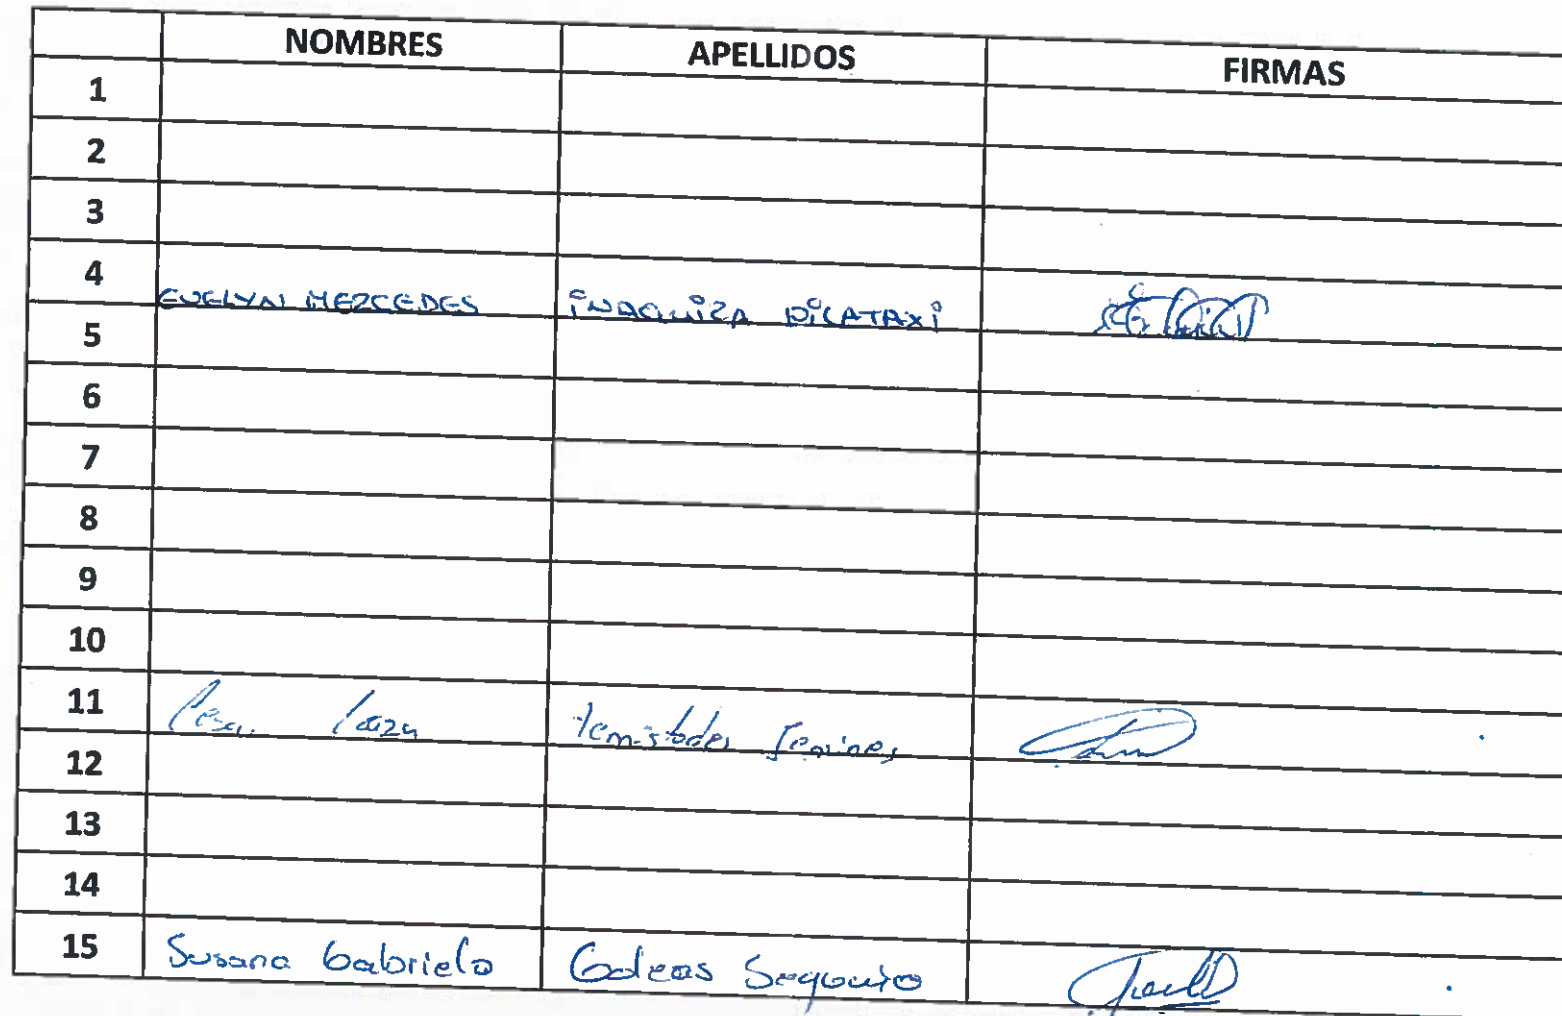 NOMBRES APELLIDOS FIRMAS
1
2
3
4 EVELYN MERCEDES iNAQUiZA PiLATAXi
5
6
7
8
9
10
11
12
13
14
15 Susana Gabriela Galeas